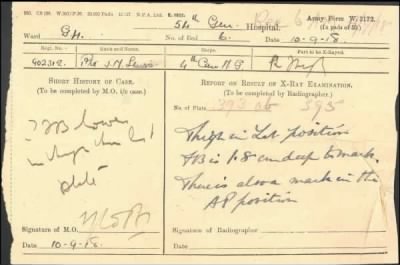 54th Gen Hospital.
Army Form W. 3172.
(In pads of 50)
Ward G.H. No. of Bed 6. Date 10-9-18
Regt. No. Rank and Name. Corps. Part to be X-Rayed
902312. Pte J. H. Lewis 4th Can M G R Thigh
Short History of Case.
(To be completed by M.O. i/c case.)
? FB lower
in thigh
plate
Signature of M.O.
Date 10-9-18.
Report on Result of X-Ray Examination.
(To be completed by Radiographer.)
No. of Plate 393 a b 395
Thigh in Lat position
FB is 1.8 cm deep to mark.
There is also a mark in the
AP position
Signature of Radiographer
Date